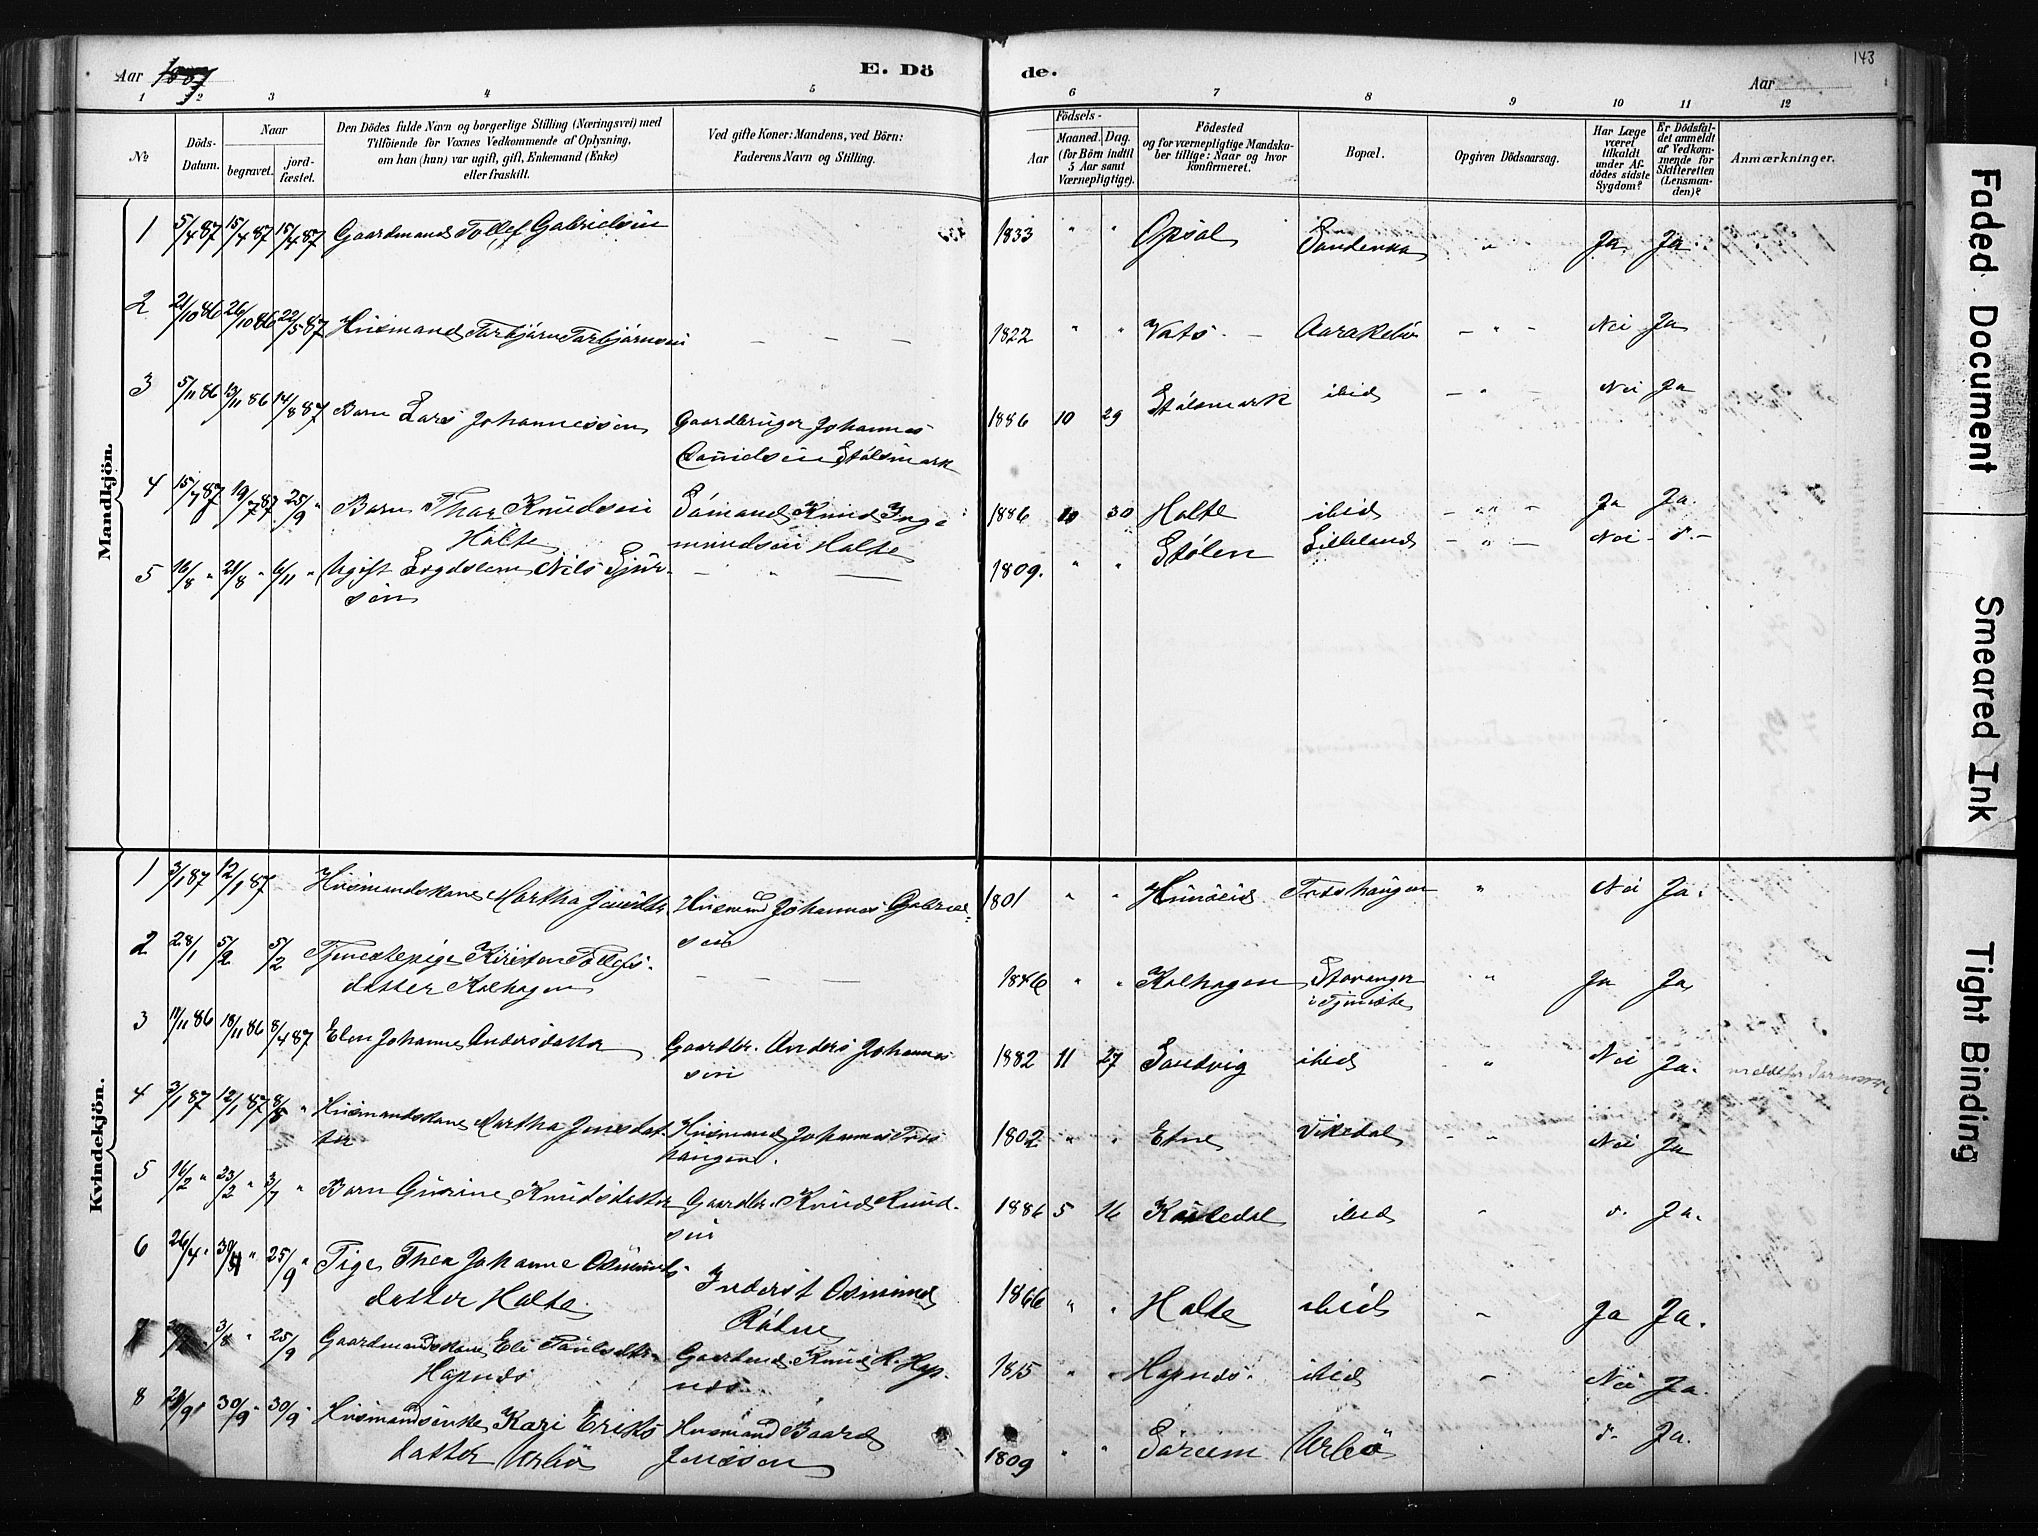 Aar 1887
E. Dö
de.
Aar
143
1 2 3 4 5 6 7 8 9 10 11 12
№
Döds-
Datum.
Naar
begravet.
jord-
fæstet.
Den Dödes fulde Navn og borgerlige Stilling (Næringsvei) med
Tilföiende for Voxnes Vedkommende af Oplysning,
om han (hun) var ugift, gift, Enkemand (Enke)
eller fraskilt.
Ved gifte Koner: Mandens, ved Börn:
Faderens Navn og Stilling.
Födsels-
Aar
Maaned.
Dag.
(for Börn indtil
5 Aar samt
Værnepligtige).
Födested
og for værnepligtige Mandska-
ber tillige: Naar og hvor
konfirmeret.
Bopæl.
Opgiven Dödsaarsag.
Har Læge
været
tilkaldt
under Af-
dödes sidste
Sygdom?
Er Dödsfal-
det anmeldt
af Vedkom-
mende for
Skifteretten
(Lensman-
den)?
Anmærkninger.
Mandkjön.
1 5/4 87 15/4 87 15/4 87 Gaardmand Tollef Gabrielsen 1833 " " Opsal Sandenaa " Ja Ja.
2 21/10 86 26/10 86 22/5 87 Husmand Torbjørn Torbjørnsen — — — 1822 " " Vats - Aarakebø - " - Nei Ja
3 5/11 86 13/11 86 14/8 87 Barn Lars Johannessen Gaardbruger Johannes 1886 10 29 Stølsmark ibid - " - Nei Ja
Davidsen Stølsmark
4 15/7 87 19/7 87 25/9 " Barn Thor Knudsen Sømand Knud Inge- 1886 10 30 Halte ibid - " - Ja Ja.
Halte mundsen Halte
5 16/8 " 21/8 " 6/11 " Ugift Legdslem Nils Sjur- — " — 1809. " " Stølen Lilleland - " - Nei - d. -
sen
Kvindekjön.
1 3/1 87 12/1 87 Husmandskone Martha Jonsdtr. Husmand Johannes Gabriel- 1801 " " Hunseid Træshaugen " Nei Ja.
sen
2 28/1 5/2 5/2 Tjenestepige Kirsten Tollefs- — — — 1846 " " Kalhagen Stavanger " Ja Ja
datter Kalhagen i Tjeneste
3 11/11 86 18/11 86 8/4 87 Elen Johanne Andersdatter Gaardbr. Anders Johannes 1882 11 27 Sandvig ibid " Nei Ja.
sen
4 3/1 87 12/1 87 8/5 " Husmandskone Martha Jonsdat- Husmand Johannes Træs 1802 " " Etne Vikedal - " Nei Ja
ter haugen.
5 16/2 " 23/2 " 3/7 " Barn Gurine Knudsdatter Gaardbr. Knud Knud- 1886 5 16 ibid " d. Ja.
sen
6 26/4 " 30/4 " 25/9 " Pige Thea Johanne Osmunds Inderst Osmund 1866 " " Halte ibid " Ja Ja.
datter Halte Røtne
7 3/8 " 25/9 Gaardmandskone Eli Poulsdtr. Gaardmd. Knud K. Hap- 1815 " " Hapnæs. ibid " Nei Ja.
Hapnæs næs.
8 24/9 " 30/9 " 30/9 " Husmandsenke Kari Eriks Husmand Baard 1809 " " Søreim Urbø " d. Ja.
datter Urbø Jonssen
Faded Document
Smeared Ink
Tight Binding